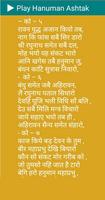 Play Hanuman Ashtak
– को – ५
रावन युद्ध अजान कियो तब,
नाग कि फाँस सबै सिर डारो
श्री रघुनाथ समेत सबै दल,
मोह भयो यह संकट भारो
आनि खगेस तबै हनुमान जु,
बंधन काटि सुत्रास निवारो,
– को – ६
बंधु समेत जबै अहिरावन,
लै रघुनाथ पताल सिधारो
देवहिं पूजि भली विधि सों बलि,
देउ सबै मिलि मन्त्र विचारो
जाये सहाए भयो तब ही,
अहिरावन सैन्य समेत संहारो,
– को – ७
काज किये बड़ देवन के तुम,
बीर महाप्रभु देखि बिचारो
कौन सो संकट मोर गरीब को,
जो तुमसो नहिं जात है टारो
बेगि हरो हनुमान महाप्रभु,